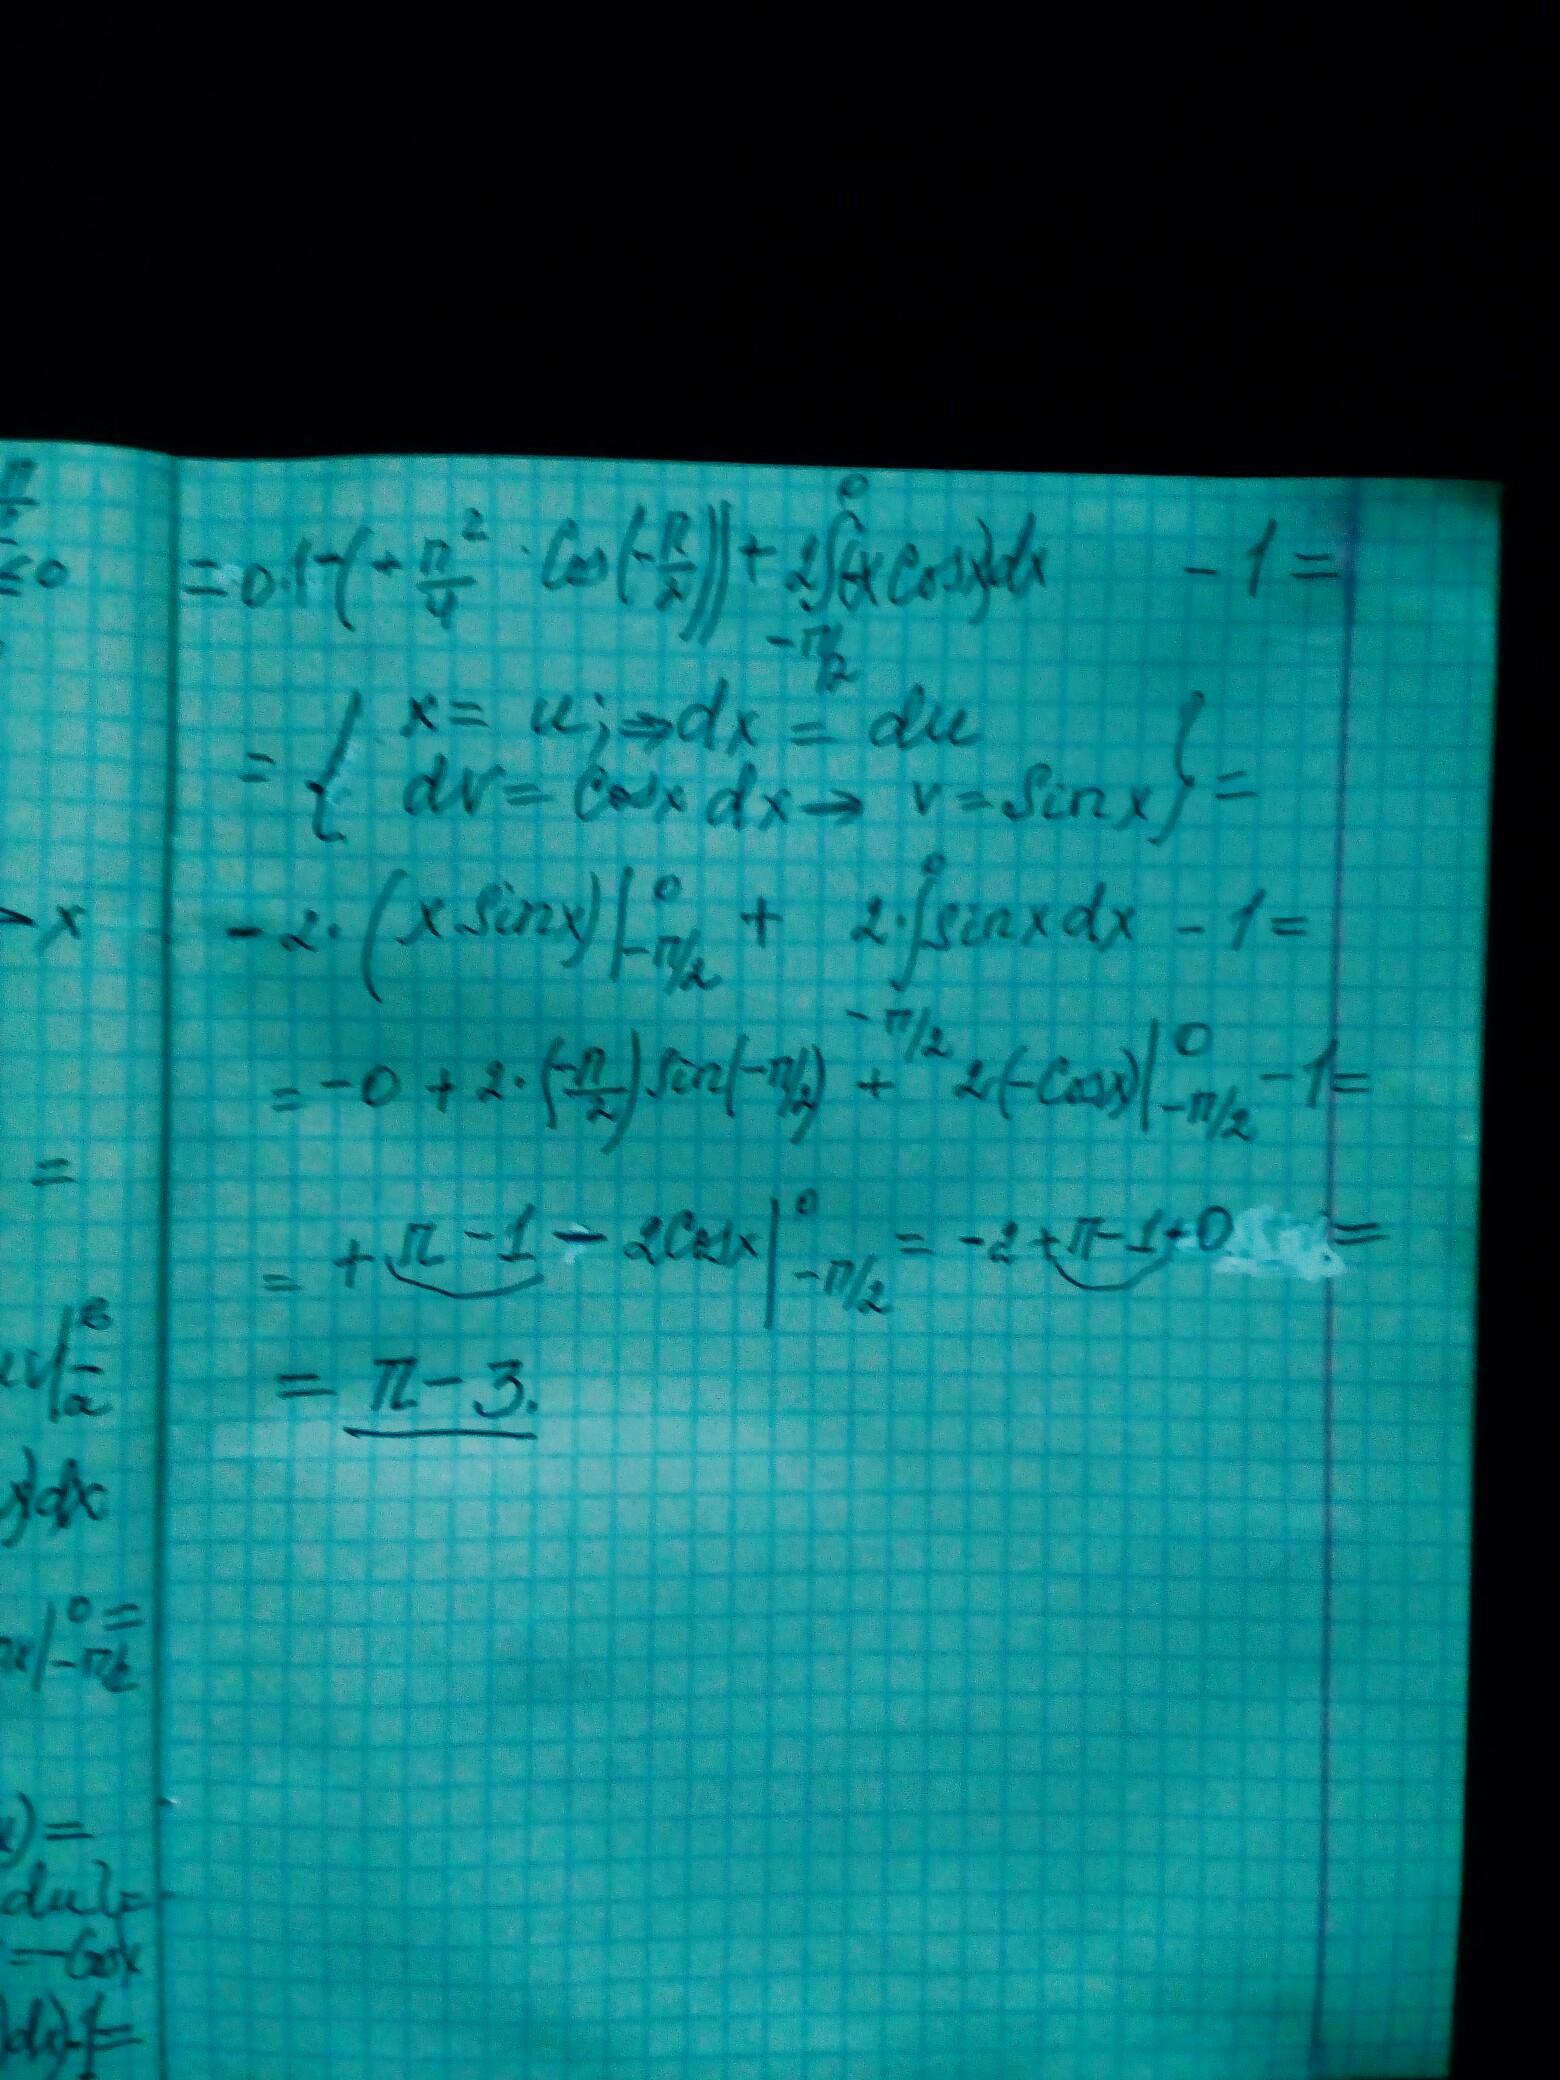 π/2
≤ 0
= 0·1-(+π²/4 · Cos(-π/2)) + 2∫_{-π/2}^{0}(-x cosx)dx - 1 =
= { x = u; ⇒ dx = du
dv = cosx dx → v = sinx } =
→ x
- 2·(x sinx)|_{-π/2}^{0} + 2·∫_{-π/2}^{0} sinx dx - 1 =
= -0 + 2·(-π/2) sin(-π/2) + 2(-cosx)|_{-π/2}^{0} - 1 =
=
= + π - 1 - 2Cosx|_{-π/2}^{0} = -2 + π - 1 + 0 =
= π - 3.
x)dx
|_{-π/2}^{0} =
) =
du} =
= -Cosx
)dx) - 1 =